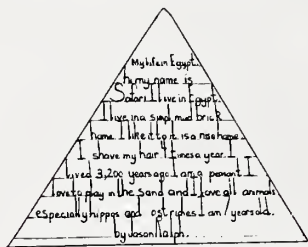 My life in Egypt.
hi my name is
Safari I live in Egypt.
I live in a simpl mud brick
home. I like it for it is a nise home.
I shave my hair times a year. I
lived 3,200 years ago I am a peasant I
love to play in the sand and I love all animals
especially hippos and ostriches I am years old.
by Jason Ralph.